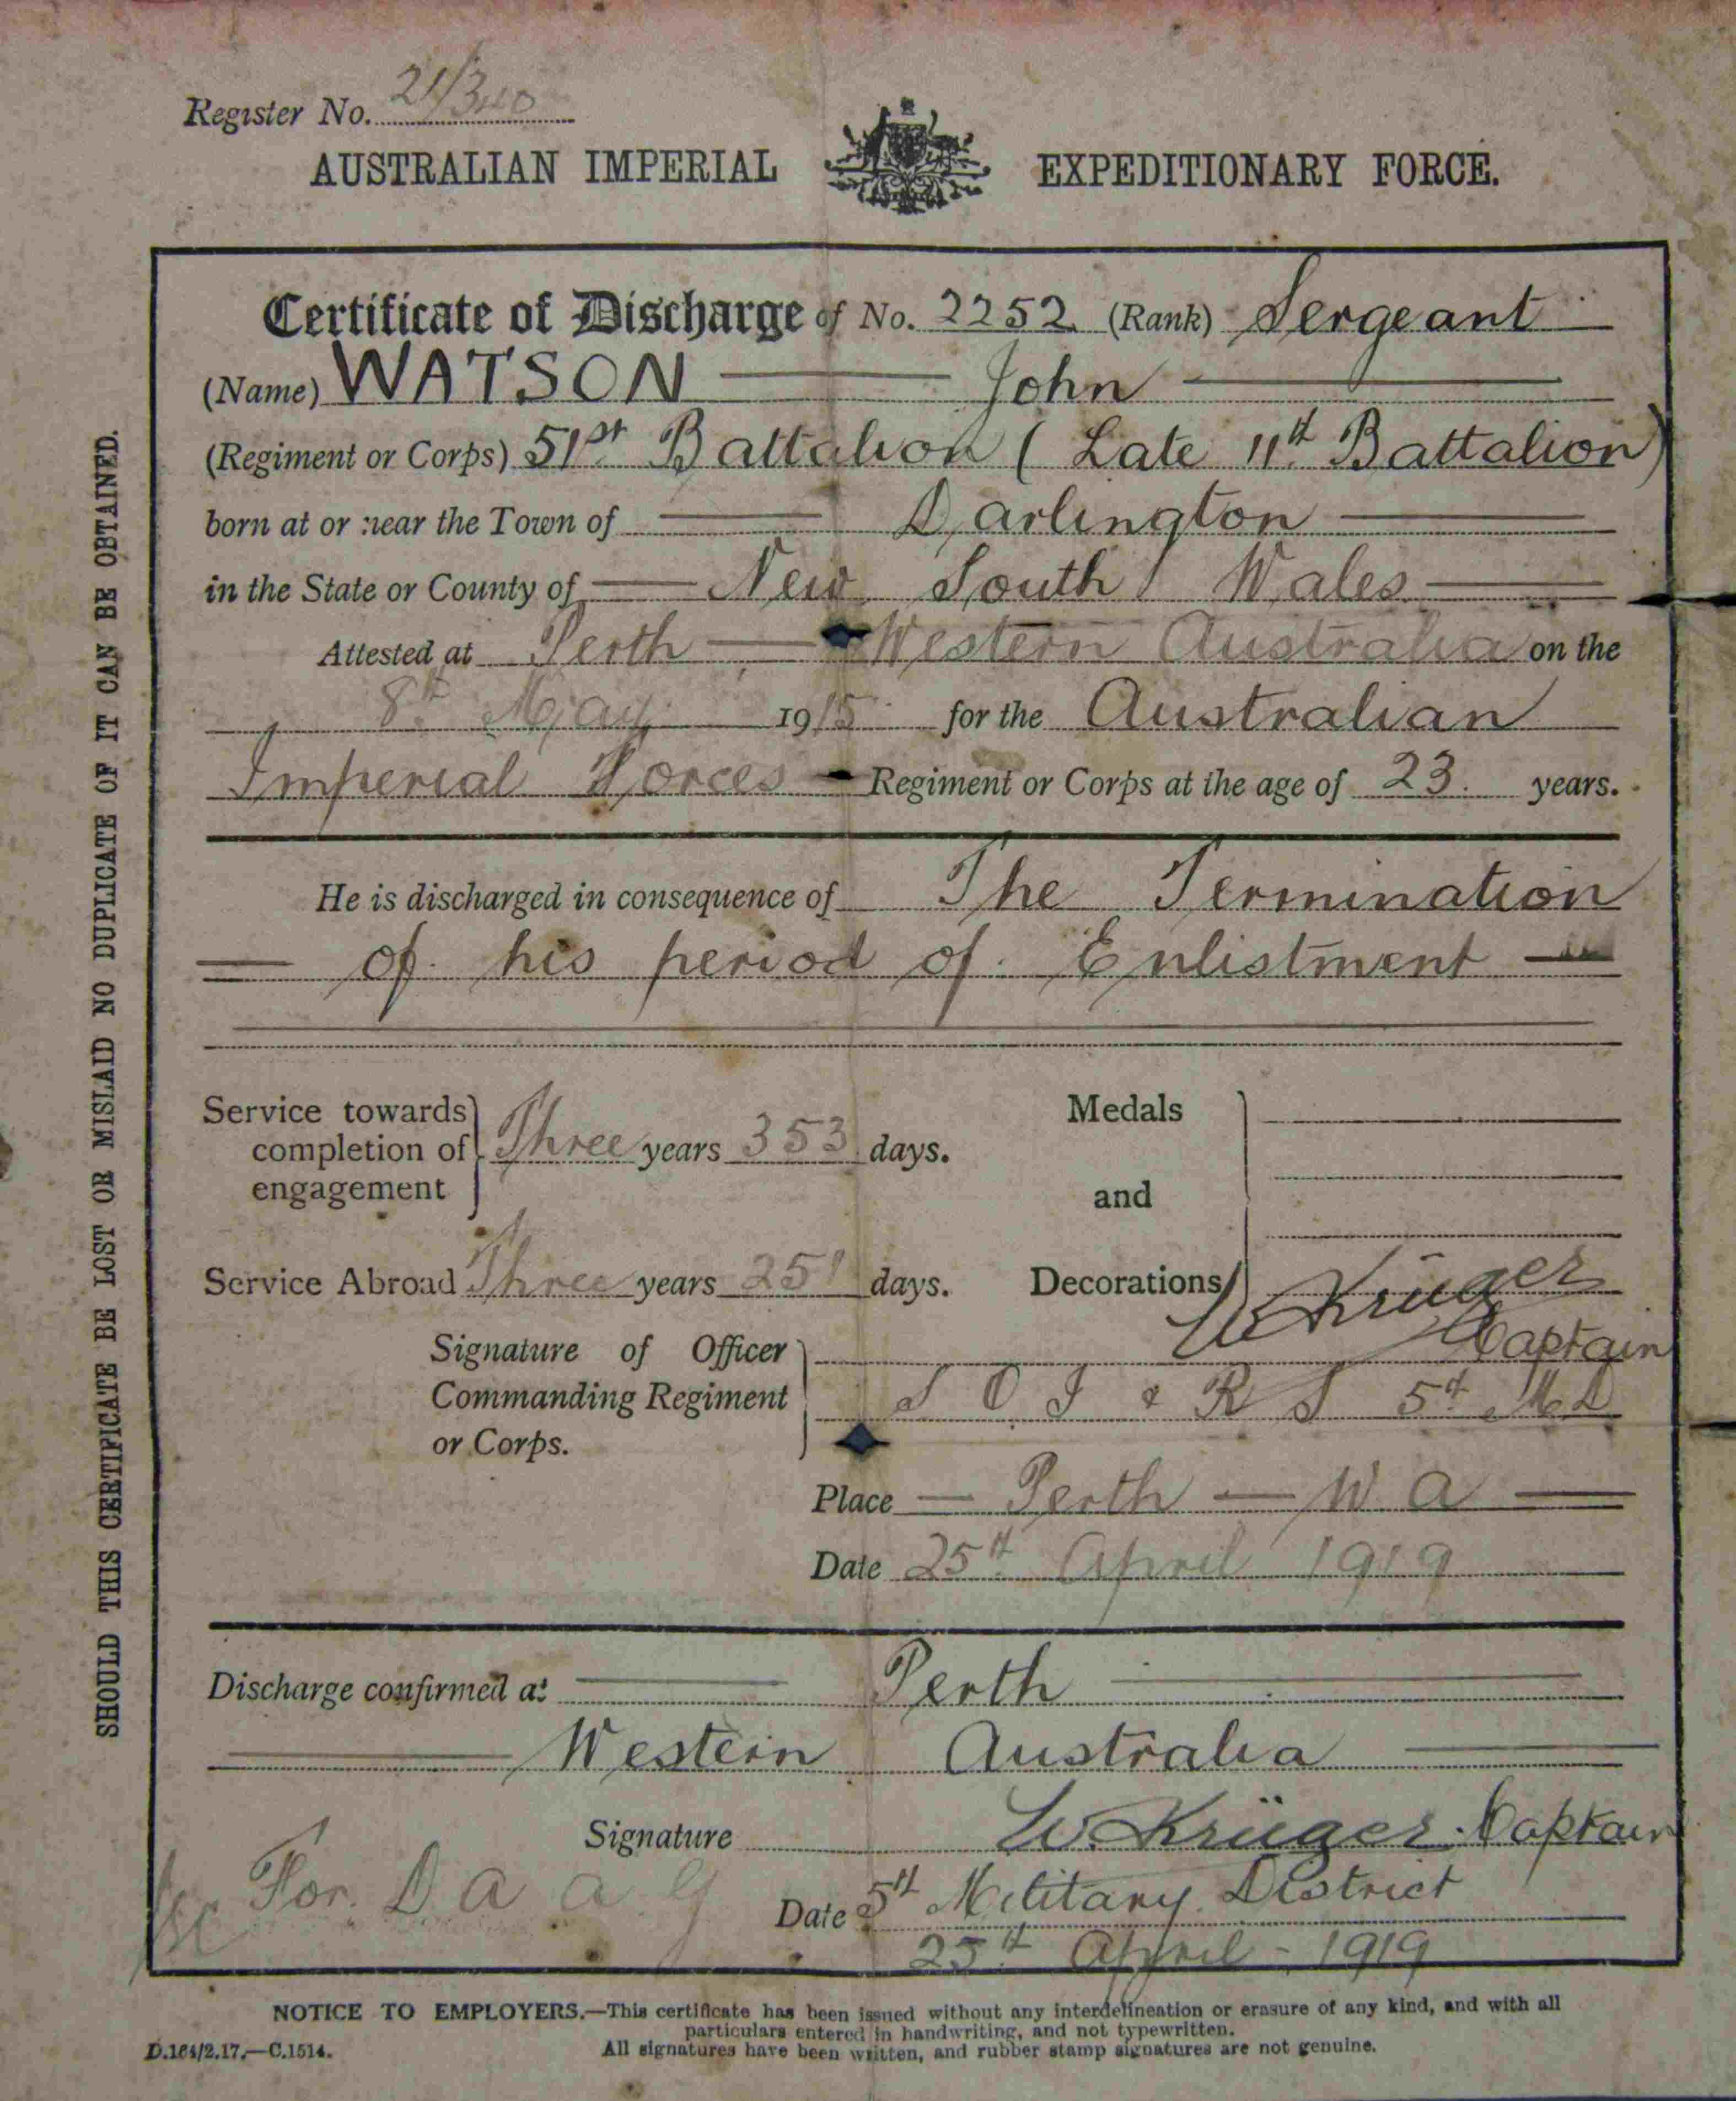 Register No. 21/3440
AUSTRALIAN IMPERIAL EXPEDITIONARY FORCE.
Certificate of Discharge of No. 2252 (Rank) Sergeant
(Name) WATSON John
(Regiment or Corps) 51st Battalion (Late 11th Battalion)
born at or near the Town of Darlington
in the State or County of New South Wales
Attested at Perth Western Australia on the
8th May 1915 for the Australian
Imperial Forces Regiment or Corps at the age of 23 years.
He is discharged in consequence of The Termination
of his period of Enlistment
Service towards completion of engagement } Three years 353 days.
Medals and Decorations
Service Abroad Three years 251 days.
Signature of Officer Commanding Regiment or Corps. W Krüger Captain
S O I & R S 5th M D
Place Perth W A
Date 25th April 1919
Discharge confirmed at Perth
Western Australia
Signature W. Krüger Captain
For. D A A G
Date 5th Military District
25th April - 1919
NOTICE TO EMPLOYERS.—This certificate has been issued without any interdelineation or erasure of any kind, and with all
particulars entered in handwriting, and not typewritten.
All signatures have been written, and rubber stamp signatures are not genuine.
D.164/2.17.—C.1514.
SHOULD THIS CERTIFICATE BE LOST OR MISLAID NO DUPLICATE OF IT CAN BE OBTAINED.